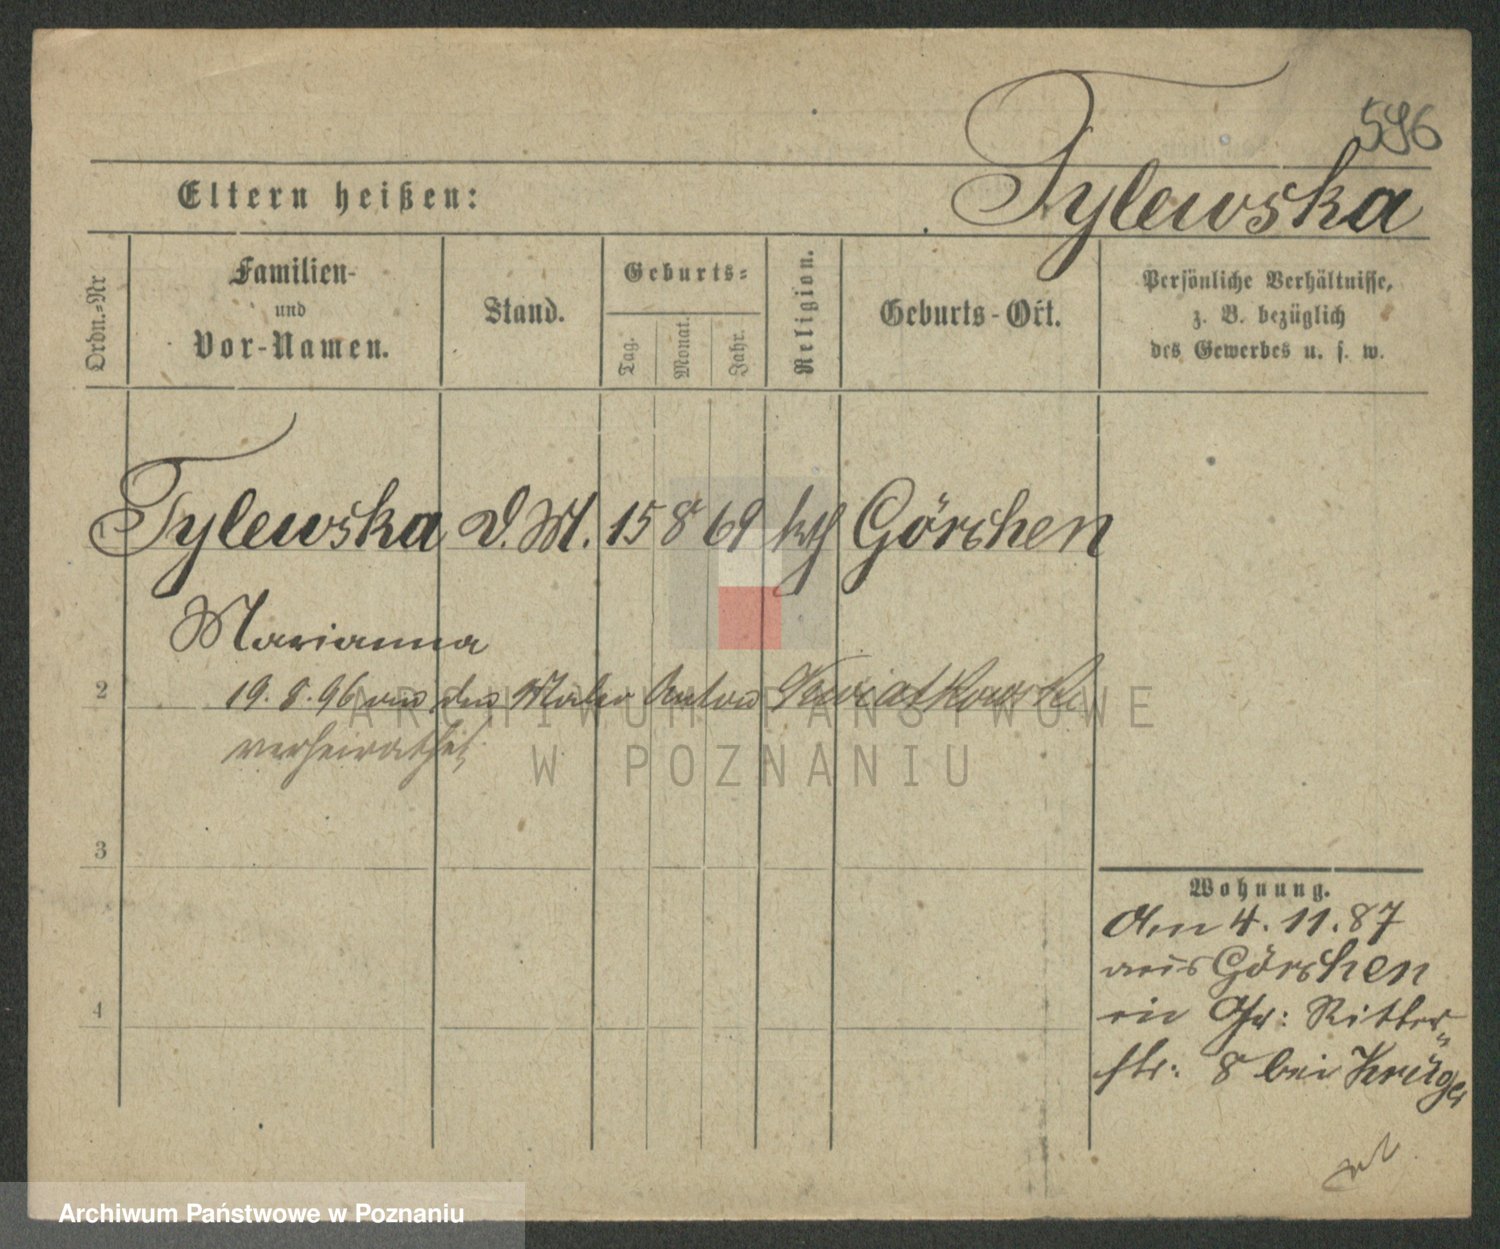 596
Tylewska
Eltern heißen:
Ordn.-Nr
Familien-
und
Vor-Namen.
Stand.
Geburts-
Tag.
Monat.
Jahr.
Religion.
Geburts-Ort.
Persönliche Verhältnisse,
z. B. bezüglich
des Gewerbes u. s. w.
1 Tylewska D. M. 15 8 69 kth Görchen
Marianna
2 19. 8. 96 an den Maler Anton Kwiatkowski
verheirathet
3
4
Wohnung.
Am 4. 11. 87
aus Görchen
Gr: Ritter
str: 8 bei Krüger
ARCHIWUM PAŃSTWOWE
W POZNANIU
Archiwum Państwowe w Poznaniu